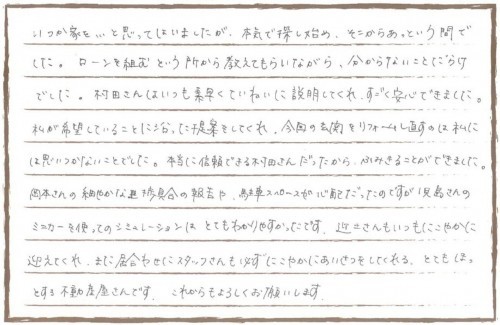 いつか家を、と思ってはいましたが、本気で探し始め、そこからあっという間で
した。ローンを組むという所から教えてもらいながら、分からないことだらけ
でした。村田さんはいつも素早くていねいに説明してくれ、すごく安心できました。
私が希望していることに沿った提案をしてくれ、今回の玄関をリフォームし直すのは私に
は思いつかないことでした。本当に信頼できる村田さんだったから、ふみきることができました。
岡本さんの細やかな進捗具合の報告や、駐車スペースが心配だったのですが児島さんの
ミニカーを使ってのシミュレーションはとてもわかりやすかったです。さんもいつもにこやかに
迎えてくれ、また居合わせたスタッフさんも必ずにこやかにあいさつをしてくれる、とてもほっ
とする不動産屋さんです。これからもよろしくお願いします。